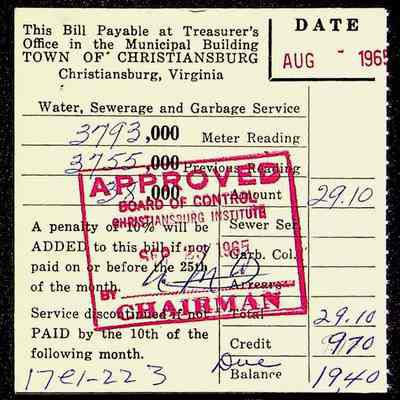 This Bill Payable at Treasurer's
Office in the Municipal Building
TOWN OF CHRISTIANSBURG
Christiansburg, Virginia
DATE
AUG - 1965
Water, Sewerage and Garbage Service
3793,000 Meter Reading
3755,000 Previous Reading
38,000 Amount 29.10
A penalty of 10% will be Sewer Ser.
ADDED to this bill if not Garb. Col.
paid on or before the 25th
of the month. Arrears
Service discontinued if not Total 29.10
PAID by the 10th of the Credit 970
following month. Due Balance 19.40
17e1-223
APPROVED
BOARD OF CONTROL
CHRISTIANSBURG INSTITUTE
SEP 23 1965
BY
CHAIRMAN